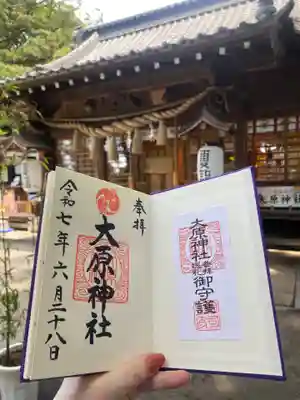 奉拝
大原神社
令和七年六月二十八日
大原神社
御守護
原神社